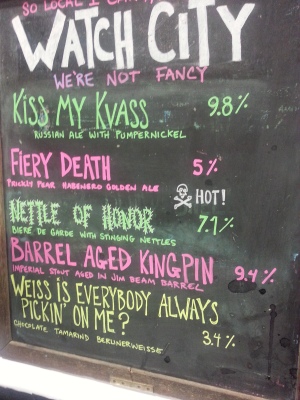 SO LOCAL I CAN
WATCH CITY
WE'RE NOT FANCY
KISS MY KVASS 9.8%
RUSSIAN ALE WITH PUMPERNICKEL
FIERY DEATH 5%
PRICKLY PEAR HABENERO GOLDEN ALE HOT!
NETTLE OF HONOR 7.1%
BIERE DE GARDE WITH STINGING NETTLES
BARREL AGED KINGPIN 9.4%
IMPERIAL STOUT AGED IN JIM BEAM BARREL
WEISS IS EVERYBODY ALWAYS
PICKIN' ON ME? 3.4%
CHOCOLATE TAMARIND BERLINERWEISSE